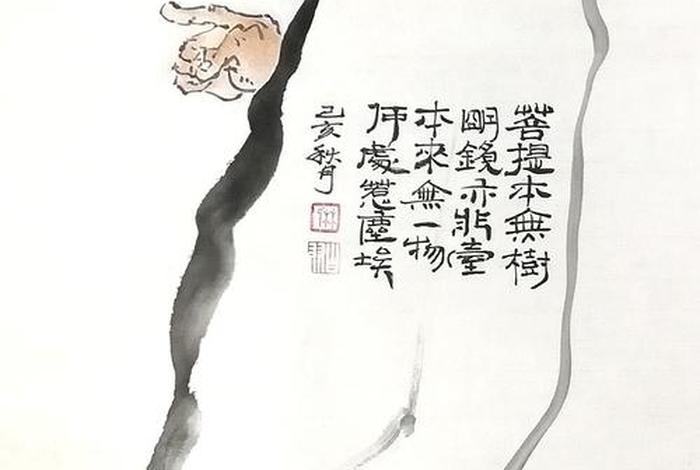 菩提本無樹
明鏡亦非臺
本來無一物
何處惹塵埃
己亥秋月